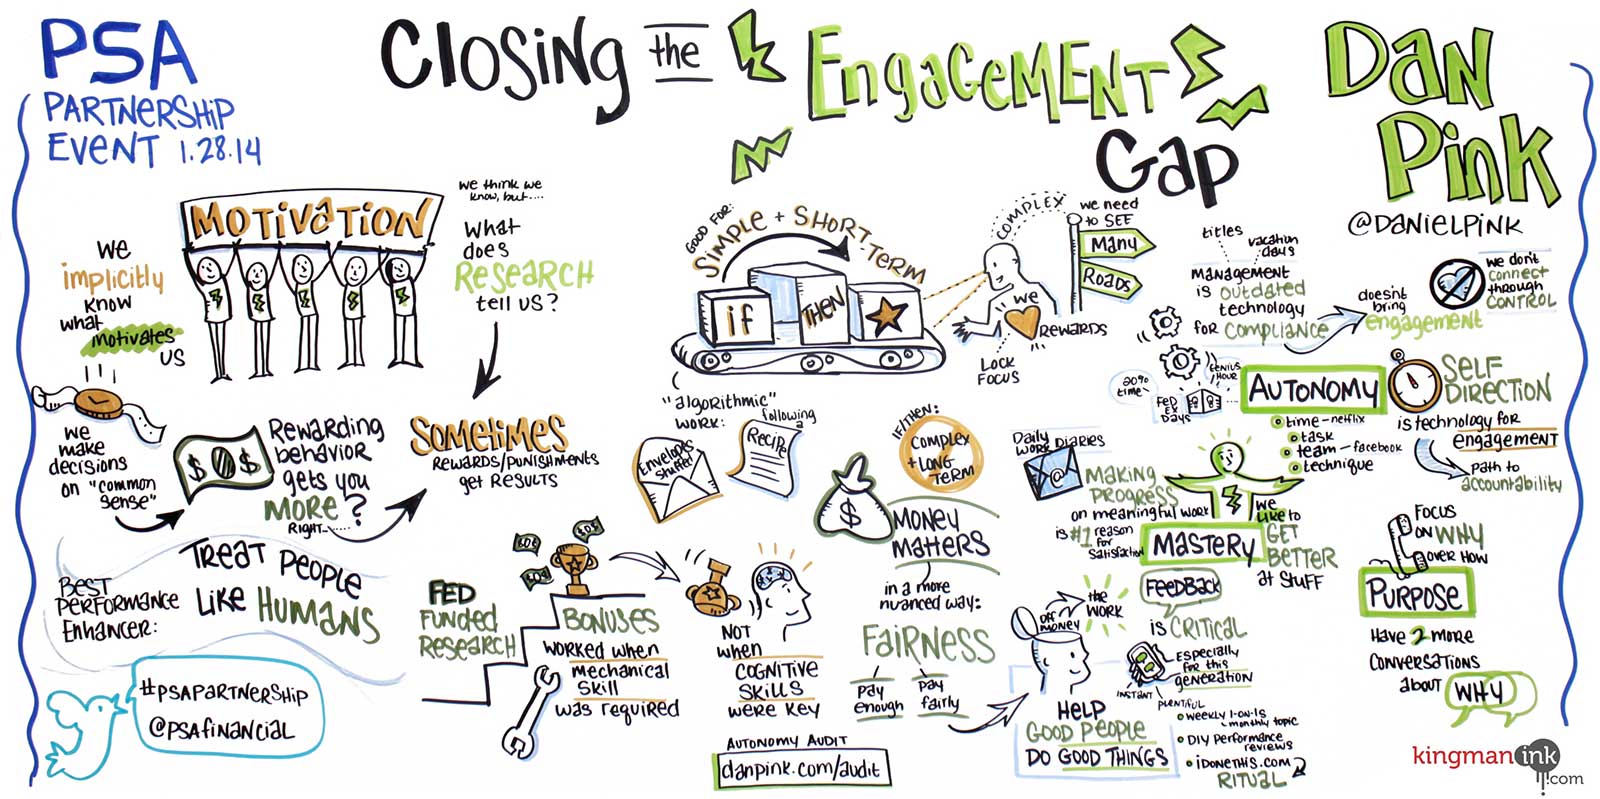 PSA
PARTNERSHIP
EVENT 1.28.14
CLOSING the
ENGAGEMENT
GAP
DAN
PINK
@DANIELPINK
MOTIVATION
we
implicitly
know
what
motivates
us
we
make
decisions
on "common
sense"
$ $
Rewarding
behavior
gets you
MORE?
RIGHT......
we think we
know, but....
WHAT
does
RESEARCH
tell us?
SOMETIMES
REWARDS/PUNISHMENTS
get RESULTS
BEST
PERFORMANCE
ENHANCER:
TREAT PEOPLE
LIKE HUMANS
#PSAPARTNERSHIP
@PSAFINANCIAL
FED
FUNDED
RESEARCH
BONUSES
WORKED WHEN
mechanical
SKILL
was required
NOT
when
COGNITIVE
SKILLS
WERE KEY
GOOD FOR:
SIMPLE + SHORT TERM
if
THEN
COMPLEX
we need
to SEE
MANY
ROADS
we
REWARDS
LOCK
FOCUS
"algorithmic"
WORK:
following
a
RECIPE
ENVELOPE
STUFFER
IF/THEN:
COMPLEX
+ LONG-
TERM
$
MONEY
MATTERS
in a more
nuanced way:
FAIRNESS
pay
enough
pay
fairly
AUTONOMY AUDIT
danpink.com/audit
OFF
MONEY
the
WORK
HELP
GOOD PEOPLE
DO GOOD THINGS
Daily
WORK DIARIES
@
MAKING
PROGRESS
on meaningful work
is #1 reason
for
satisfaction
MASTERY
we
LIKE to
GET
BETTER
at STUFF
FEEDBACK
is CRITICAL
ESPECIALLY
for this
generation
INSTANT
PLENTIFUL
WEEKLY 1-ON-1s
monthly topic
DIY PERFORMANCE
REVIEWS
iDONETHIS.COM
RITUAL
titles
vacation
days
MANAGEMENT
is outdated
technology
for compliance
doesn't
bring
engagement
we don't
connect
through
CONTROL
20%
time
FED
EX
DAYS
GENIUS
HOUR
AUTONOMY
time - netflix
task
team - facebook
technique
SELF
DIRECTION
is technology for
engagement
path to
accountability
FOCUS
ON WHY
OVER HOW
PURPOSE
HAVE 2 MORE
CONVERSATIONS
about WHY
kingmanink
.com